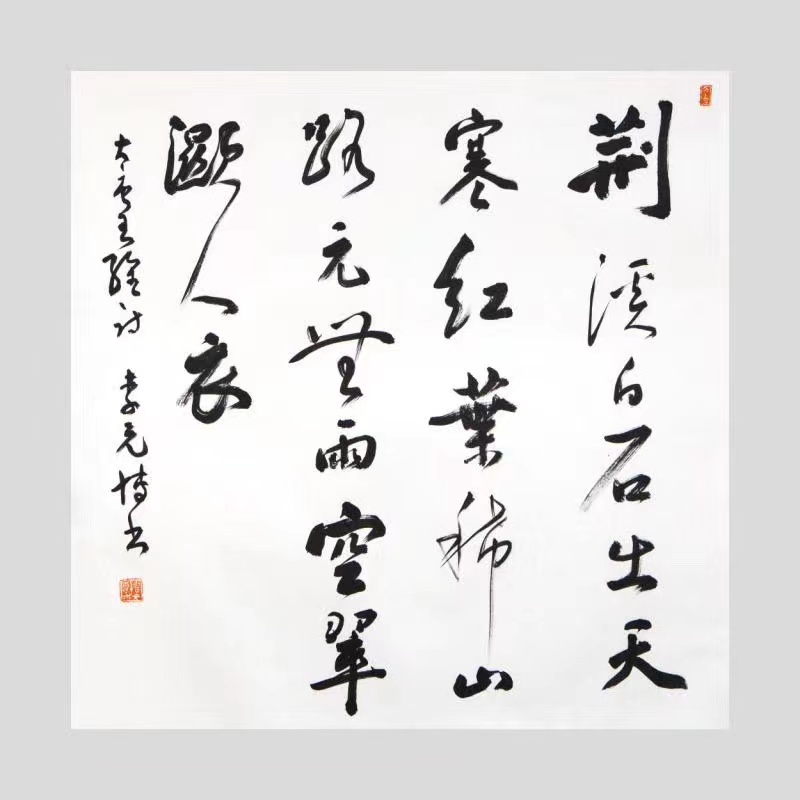 荆溪白石出天
寒紅葉稀山
路元無雨空翠
濕人衣
大唐王維詩 李元博书